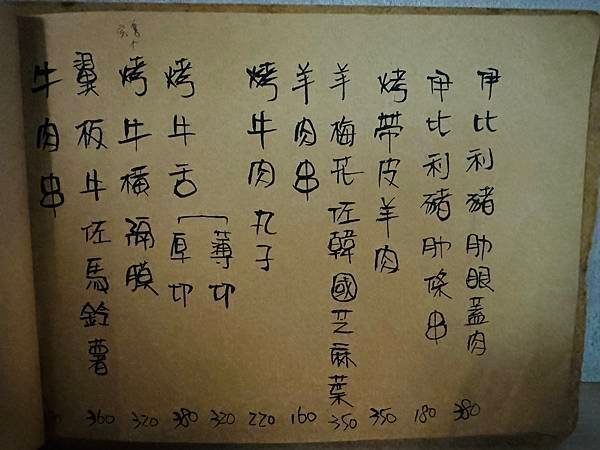 伊比利豬肋眼蓋肉 380
伊比利豬肋條串 180
烤帶皮羊肉 350
羊梅花佐韓國芝麻葉 350
羊肉串 160
烤牛肉丸子 220
薄切 320
烤牛舌 厚切 380
烤牛橫膈膜 320
翼板牛佐馬鈴薯 360
牛肉串